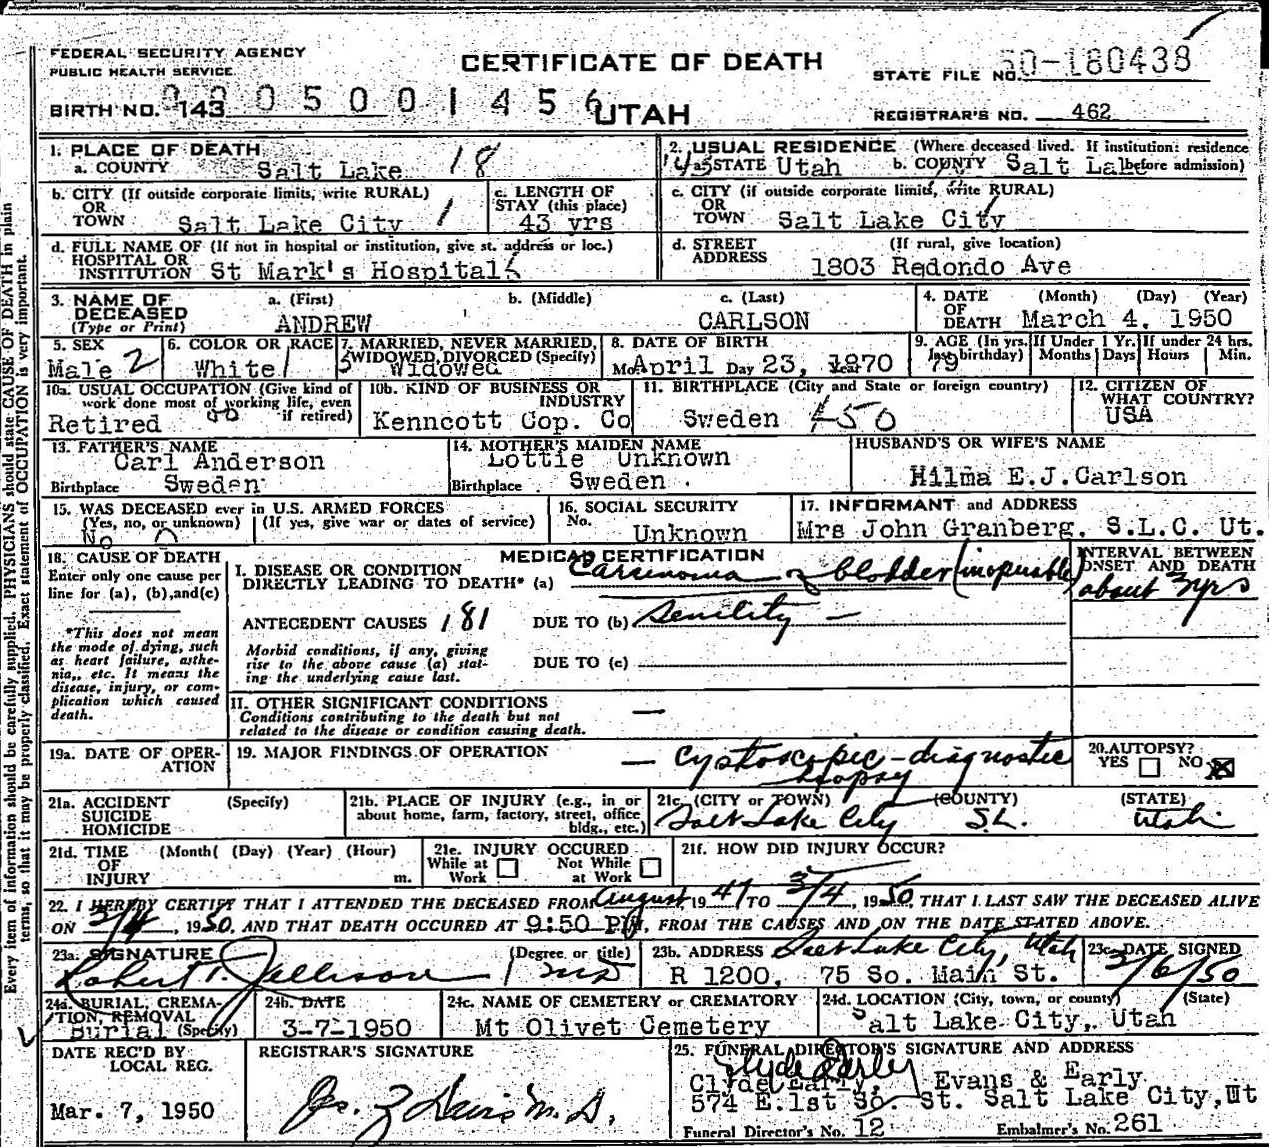 FEDERAL SECURITY AGENCY
PUBLIC HEALTH SERVICE
CERTIFICATE OF DEATH
STATE FILE NO. 50-180438
BIRTH NO. 143 0 5 0 0 1 4 5 6
UTAH
REGISTRAR'S NO. 462
1. PLACE OF DEATH
a. COUNTY Salt Lake 18
2. USUAL RESIDENCE (Where deceased lived. If institution: residence
a. STATE Utah b. COUNTY Salt Lake before admission)
b. CITY (If outside corporate limits, write RURAL)
OR
TOWN Salt Lake City 1
c. LENGTH OF
STAY (this place)
43 yrs
c. CITY (if outside corporate limits, write RURAL)
OR
TOWN Salt Lake City
d. FULL NAME OF (If not in hospital or institution, give st. address or loc.)
HOSPITAL OR
INSTITUTION St Mark's Hospital
d. STREET (If rural, give location)
ADDRESS
1803 Redondo Ave
3. NAME OF a. (First) b. (Middle) c. (Last)
DECEASED
(Type or Print) ANDREW CARLSON
4. DATE (Month) (Day) (Year)
OF
DEATH March 4, 1950
5. SEX
Male 2
6. COLOR OR RACE
White 1
7. MARRIED, NEVER MARRIED,
WIDOWED, DIVORCED (Specify)
Widowed
8. DATE OF BIRTH
Mo April Day 23, Year 1870
9. AGE (In yrs. If Under 1 Yr. If under 24 hrs.
last birthday) Months Days Hours Min.
79
10a. USUAL OCCUPATION (Give kind of
work done most of working life, even
if retired)
Retired
10b. KIND OF BUSINESS OR
INDUSTRY
Kenncott Cop. Co
11. BIRTHPLACE (City and State or foreign country)
Sweden 450
12. CITIZEN OF
WHAT COUNTRY?
USA
13. FATHER'S NAME
Carl Anderson
Birthplace Sweden
14. MOTHER'S MAIDEN NAME
Lottie Unknown
Birthplace Sweden
HUSBAND'S OR WIFE'S NAME
Hilma E.J.Carlson
15. WAS DECEASED ever in U.S. ARMED FORCES
(Yes, no, or unknown) (If yes, give war or dates of service)
No 0
16. SOCIAL SECURITY
No.
Unknown
17. INFORMANT and ADDRESS
Mrs John Granberg, S.L.C. Ut.
18. CAUSE OF DEATH
Enter only one cause per
line for (a), (b), and (c)
*This does not mean
the mode of dying, such
as heart failure, asthe-
nia, etc. It means the
disease, injury, or com-
plication which caused
death.
MEDICAL CERTIFICATION
I. DISEASE OR CONDITION
DIRECTLY LEADING TO DEATH* (a) Carcinoma of bladder (inoperable)
INTERVAL BETWEEN
ONSET AND DEATH
about 3 yrs
ANTECEDENT CAUSES 181 DUE TO (b) Senility
Morbid conditions, if any, giving
rise to the above cause (a) stat-
ing the underlying cause last.
DUE TO (c)
II. OTHER SIGNIFICANT CONDITIONS
Conditions contributing to the death but not
related to the disease or condition causing death.
19a. DATE OF OPER-
ATION
19. MAJOR FINDINGS OF OPERATION
— Cystoscopic - diagnostic
biopsy
20. AUTOPSY?
YES NO X
21a. ACCIDENT (Specify)
SUICIDE
HOMICIDE
21b. PLACE OF INJURY (e.g., in or
about home, farm, factory, street, office
bldg., etc.)
21c. (CITY or TOWN) (COUNTY) (STATE)
Salt Lake City S.L. Utah
21d. TIME (Month( (Day) (Year) (Hour)
OF
INJURY m.
21e. INJURY OCCURED
While at Not While
Work at Work
21f. HOW DID INJURY OCCUR?
22. I HEREBY CERTIFY THAT I ATTENDED THE DECEASED FROM August 1947 TO 3/4, 1950 THAT I LAST SAW THE DECEASED ALIVE
ON 3/4, 1950, AND THAT DEATH OCCURED AT 9:50 PM, FROM THE CAUSES AND ON THE DATE STATED ABOVE.
23a. SIGNATURE (Degree or title)
Robert T. Jellison MD
23b. ADDRESS Salt Lake City, Utah
R 1200, 75 So. Main St.
23c. DATE SIGNED
3/6/50
24a. BURIAL, CREMA-
TION, REMOVAL
Burial (Specify)
24b. DATE
3-7-1950
24c. NAME OF CEMETERY or CREMATORY
Mt Olivet Cemetery
24d. LOCATION (City, town, or county) (State)
Salt Lake City, Utah
DATE REC'D BY
LOCAL REG.
Mar. 7, 1950
REGISTRAR'S SIGNATURE
25. FUNERAL DIRECTOR'S SIGNATURE AND ADDRESS
Clyde Early
Clyde Early, Evans & Early
574 E.1st So. St. Salt Lake City, Ut
Funeral Director's No. 12 Embalmer's No. 261
Every item of information should be carefully supplied. PHYSICIANS should state CAUSE OF DEATH in plain
terms, so that it may be properly classified. Exact statement of OCCUPATION is very important.